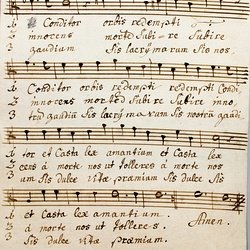 1. Conditor orbis redempti
2 innocens morte Subi- re Subire
3 gaudium Sis lacrymarum Sis nos
1. Conditor orbis redempti redempti Condi
2 innocens mortem Subire Subire inno,
3 gaudium Sis lacrymarum Sis nostru gaudi
1. tor et Casta lex amantium et Casta lex
2 cens à morte nos ut tolleres à morte nos
3 um Sis dulce vitæ præmium Sis dulce Sis
1. et Casta lex amantium.
2 à morte nos ut tolleres. Amen.
3 Sis dulce vitæ præmium.